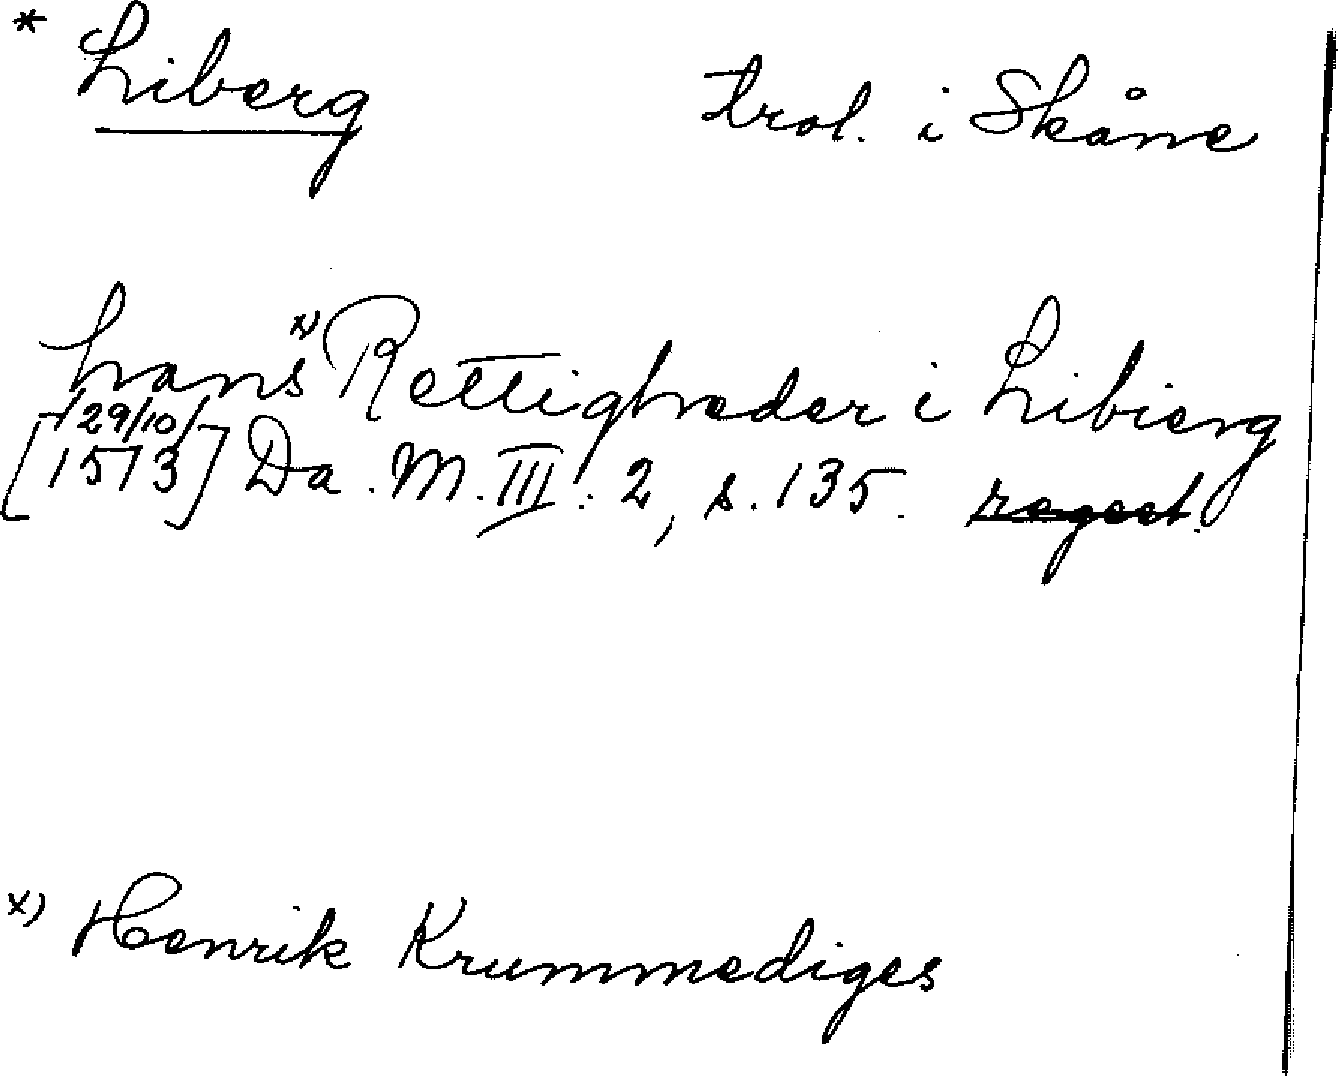 * Liberg trol. i Skåne
hans x) Rettigheder i Libierg
[29/10 1513] Da. M. III. 2, s. 135. regest.
x) Henrik Krummediges